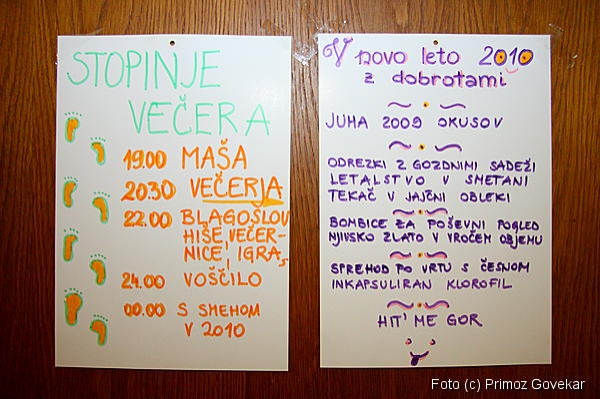 STOPINJE
VEČERA
19.00 MAŠA
20.30 VEČERJA
22.00 BLAGOSLOV
HIŠE, VEČER-
NICE, IGRA,
24.00 VOŠČILO
00.00 S SMEHOM
V 2010
V novo leto 2010
z dobrotami
JUHA 2009 OKUSOV
ODREZKI Z GOZDNIMI SADEŽI
LETALSTVO V SMETANI
TEKAČ V JAJČNI OBLEKI
BOMBICE ZA POŠEVNI POGLED
NJIVSKO ZLATO V VROČEM OBJEMU
SPREHOD PO VRTU S ČESNOM
INKAPSULIRAN KLOROFIL
HIT' ME GOR
Foto (c) Primoz Govekar